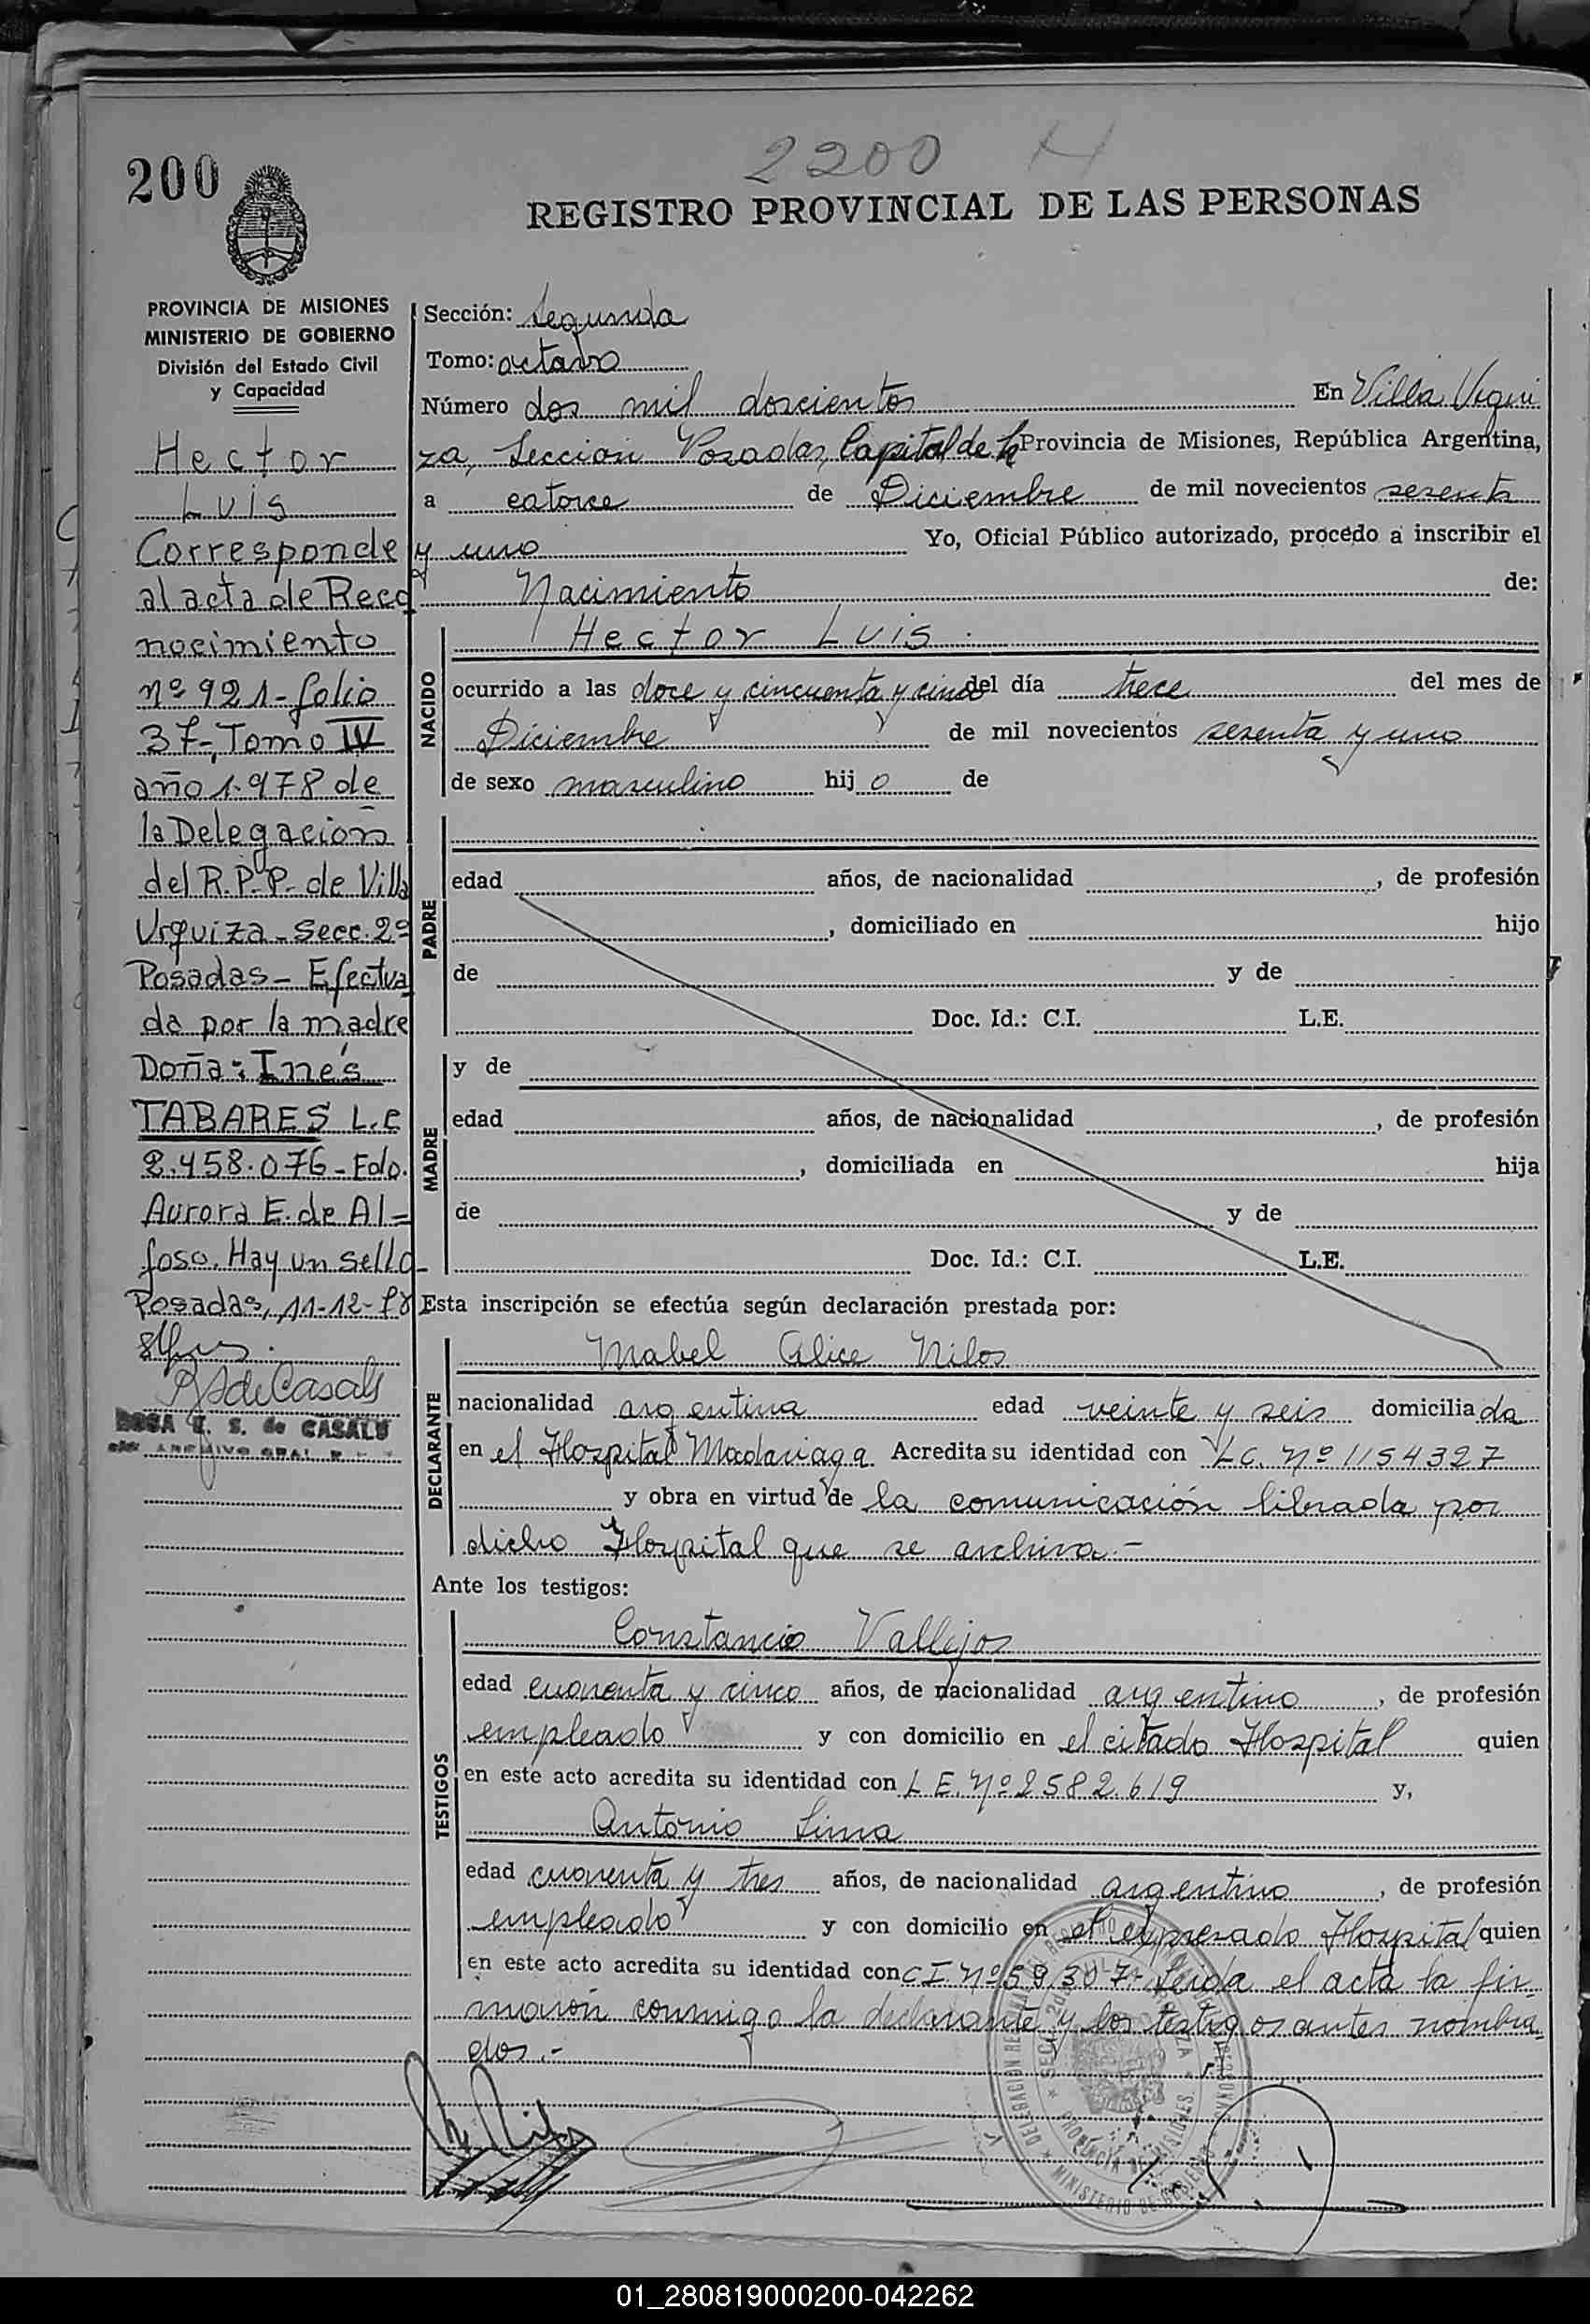 200
2200 H
REGISTRO PROVINCIAL DE LAS PERSONAS
PROVINCIA DE MISIONES
MINISTERIO DE GOBIERNO
División del Estado Civil
y Capacidad
Hector
Luis
Corresponde
al acta de Reco
nocimiento
nº 921-folio
37-, Tomo IV
año 1.978 de
la Delegación
del R.P.P. de Villa
Urquiza-Secc. 2º
Posadas- Efectua
da por la madre
Doña: Inés
TABARES L.C
2.458.076-Fdo.
Aurora E. de Al=
foso. Hay un sello-
Posadas, 11-12-78
ROSA E. S. de CASALS
Sección: Segunda
Tomo: octavo
Número dos mil doscientos En Villa Urqui
za, Sección Posadas, Capital de la Provincia de Misiones, República Argentina,
a catorce de Diciembre de mil novecientos sesenta
y uno Yo, Oficial Público autorizado, procedo a inscribir el
Nacimiento de:
NACIDO
Hector Luis.
ocurrido a las doce y cincuenta y cinco del día trece del mes de
Diciembre de mil novecientos sesenta y uno
de sexo masculino hij o de
PADRE
edad años, de nacionalidad , de profesión
, domiciliado en hijo
de y de
Doc. Id.: C.I. L.E.
MADRE
y de
edad años, de nacionalidad , de profesión
, domiciliada en hija
de y de
Doc. Id.: C.I. L.E.
Esta inscripción se efectúa según declaración prestada por:
DECLARANTE
Mabel Alice Nilos
nacionalidad argentina edad veinte y seis domicilia da
en el Hospital Madariaga. Acredita su identidad con L.C. Nº 1154327
y obra en virtud de la comunicación librada por
dicho Hospital que se archiva.-
Ante los testigos:
TESTIGOS
Constancio Vallejos
edad cuarenta y cinco años, de nacionalidad argentino , de profesión
empleado y con domicilio en el citado Hospital quien
en este acto acredita su identidad con L.E. Nº 2582.619 y,
Antonio Lima
edad cuarenta y tres años, de nacionalidad argentino , de profesión
empleado y con domicilio en el expresado Hospital quien
en este acto acredita su identidad con C.I. Nº 59.307- Leida el acta la fir
maron conmigo la declarante y los testigos antes nombra
dos.-
01_280819000200-042262